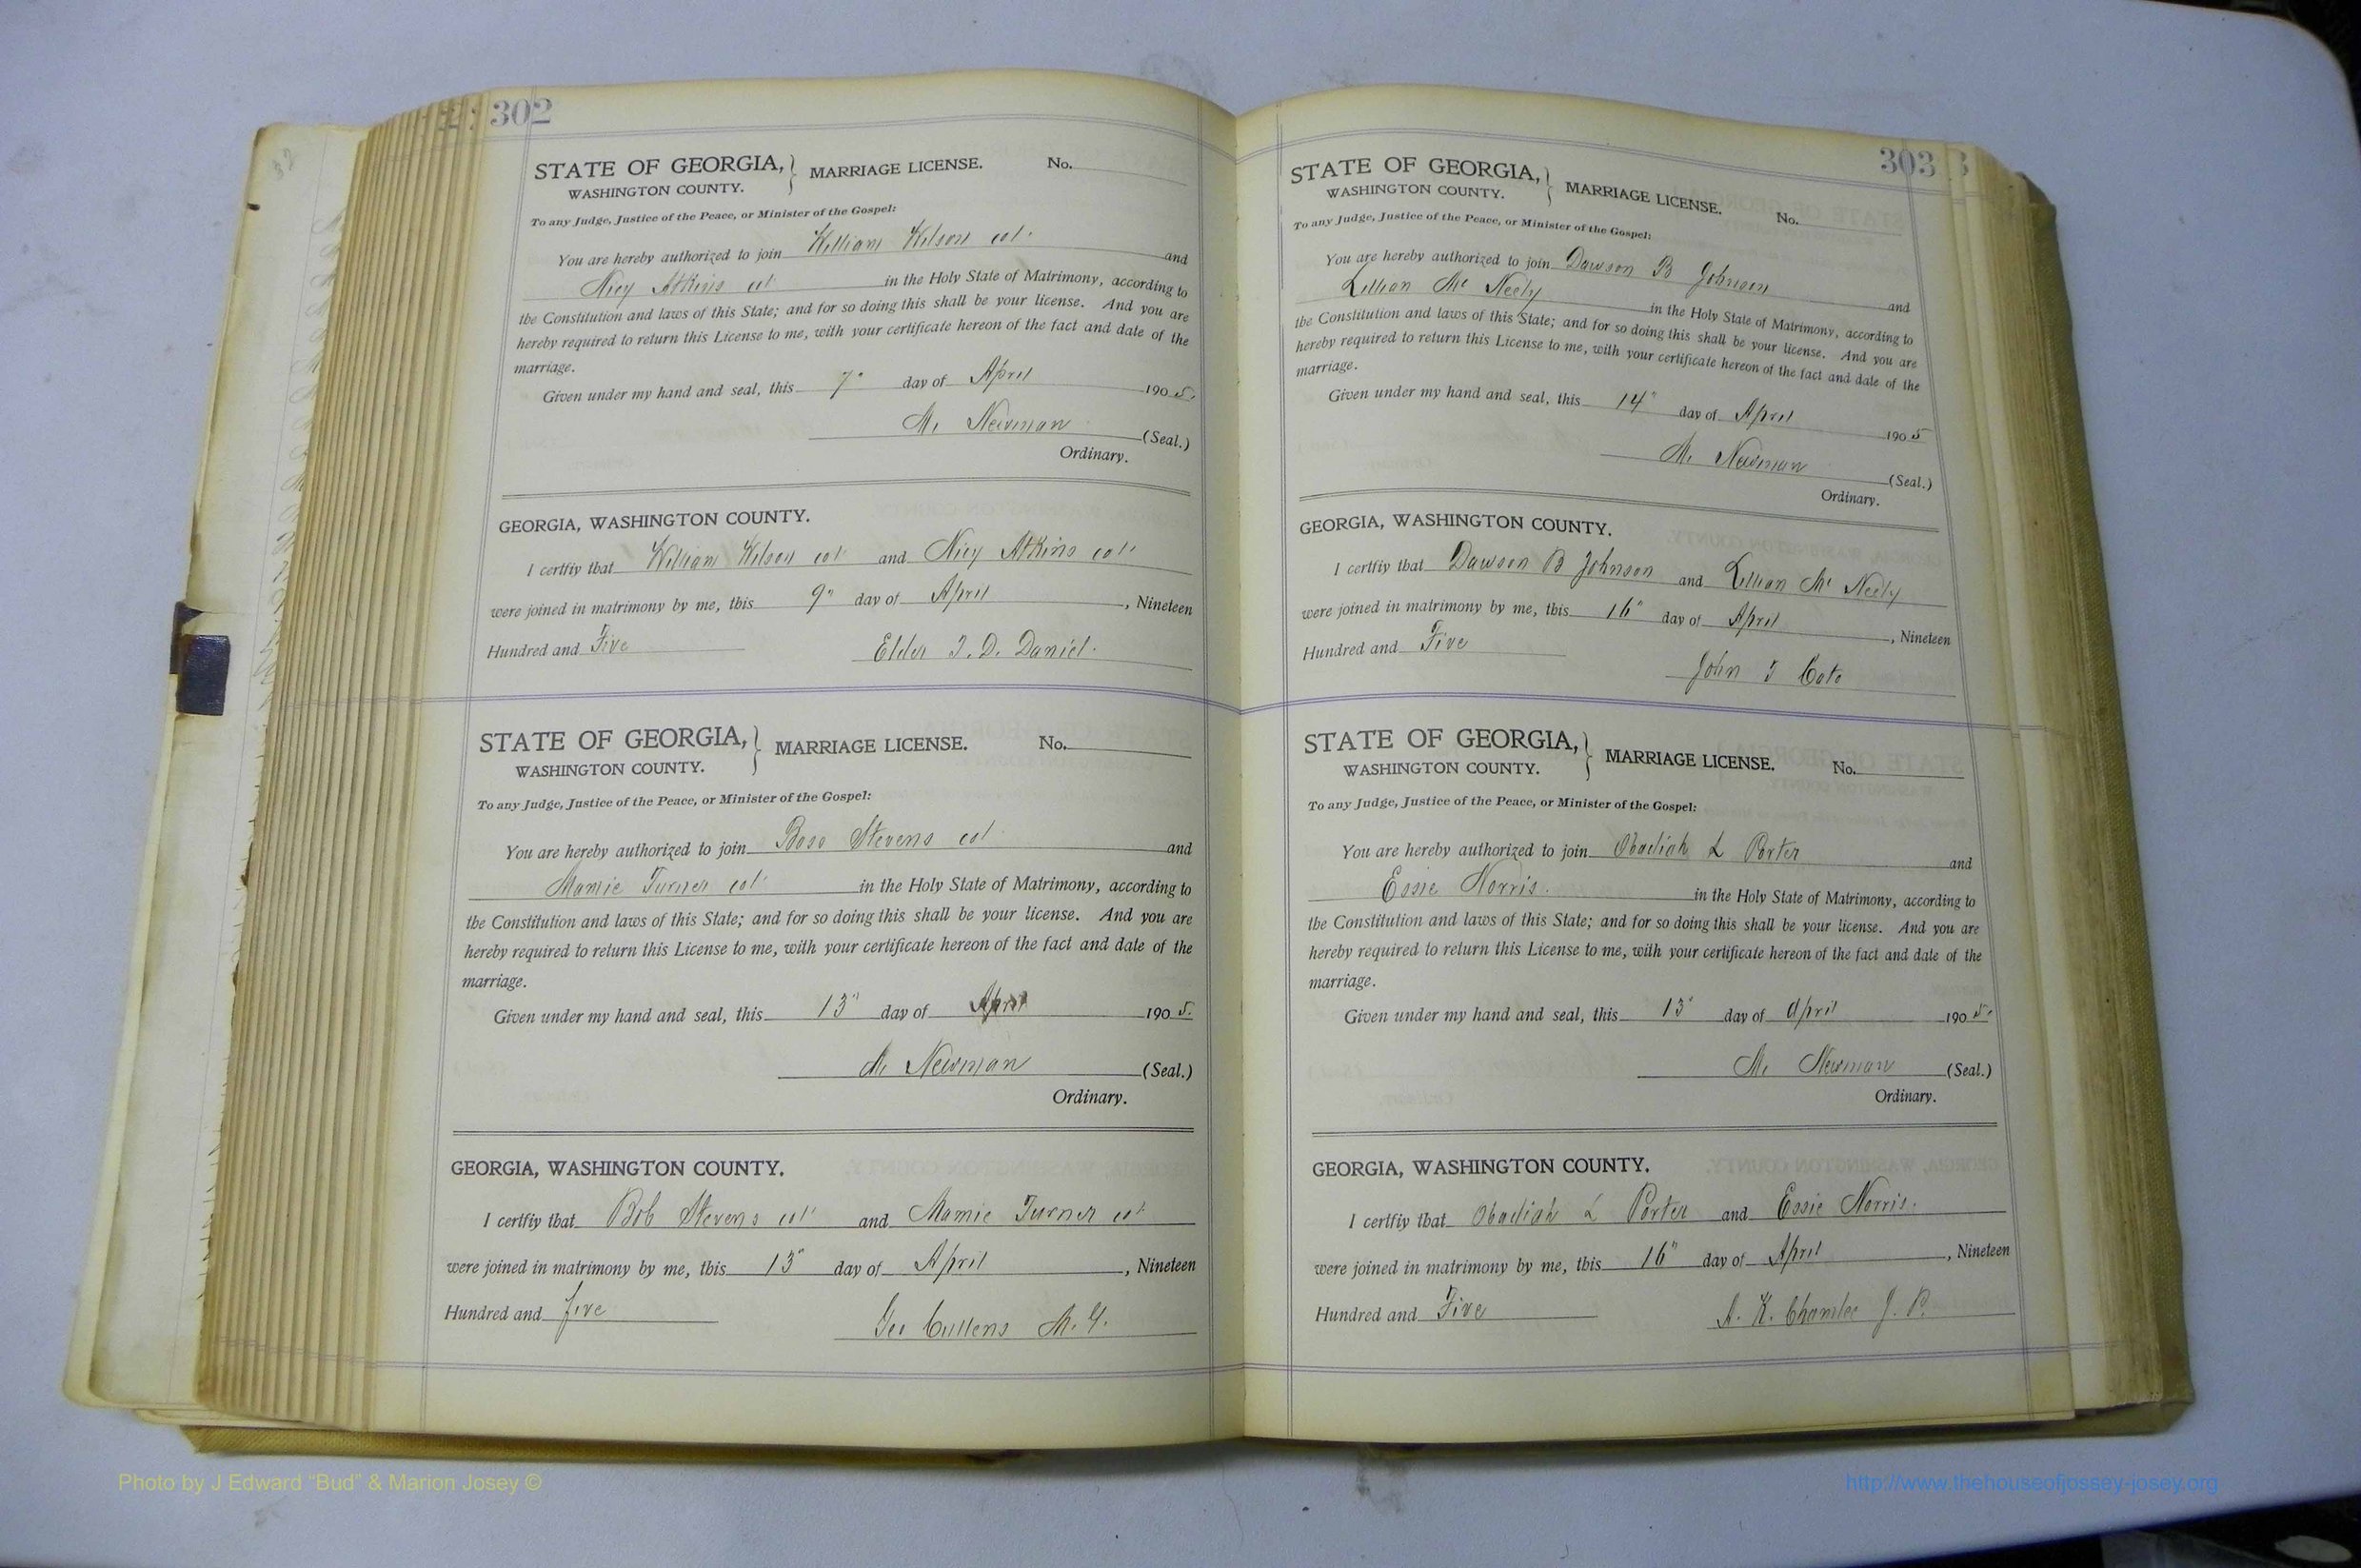 302
STATE OF GEORGIA, } MARRIAGE LICENSE. No.
WASHINGTON COUNTY.
To any Judge, Justice of the Peace, or Minister of the Gospel:
You are hereby authorized to join William Wilson col. and
Nicy Atkins col in the Holy State of Matrimony, according to
the Constitution and laws of this State; and for so doing this shall be your license. And you are
hereby required to return this License to me, with your certificate hereon of the fact and date of the
marriage.
Given under my hand and seal, this 7" day of April 1905.
M. Newman (Seal.)
Ordinary.
GEORGIA, WASHINGTON COUNTY.
I certfiy that William Wilson col and Nicy Atkins col
were joined in matrimony by me, this 9" day of April, Nineteen
Hundred and Five Elder T. D. Daniel.
STATE OF GEORGIA, } MARRIAGE LICENSE. No.
WASHINGTON COUNTY.
To any Judge, Justice of the Peace, or Minister of the Gospel:
You are hereby authorized to join Stevens col and
Mamie Turner col in the Holy State of Matrimony, according to
the Constitution and laws of this State; and for so doing this shall be your license. And you are
hereby required to return this License to me, with your certificate hereon of the fact and date of the
marriage.
Given under my hand and seal, this 13" day of April 1905.
M. Newman (Seal.)
Ordinary.
GEORGIA, WASHINGTON COUNTY.
I certfiy that Bob Stevens col and Mamie Turner col
were joined in matrimony by me, this 13" day of April, Nineteen
Hundred and five Geo Cullens M. G.
303
STATE OF GEORGIA, } MARRIAGE LICENSE. No.
WASHINGTON COUNTY.
To any Judge, Justice of the Peace, or Minister of the Gospel:
You are hereby authorized to join Dawson B Johnson and
Lillian Mc Neely in the Holy State of Matrimony, according to
the Constitution and laws of this State; and for so doing this shall be your license. And you are
hereby required to return this License to me, with your certificate hereon of the fact and date of the
marriage.
Given under my hand and seal, this 14" day of April 1905
M. Newman (Seal.)
Ordinary.
GEORGIA, WASHINGTON COUNTY.
I certfiy that Dawson B Johnson and Lillian Mc Neely
were joined in matrimony by me, this 16" day of April, Nineteen
Hundred and Five John T
STATE OF GEORGIA, } MARRIAGE LICENSE. No.
WASHINGTON COUNTY.
To any Judge, Justice of the Peace, or Minister of the Gospel:
You are hereby authorized to join Obadiah L Porter and
Essie Norris. in the Holy State of Matrimony, according to
the Constitution and laws of this State; and for so doing this shall be your license. And you are
hereby required to return this License to me, with your certificate hereon of the fact and date of the
marriage.
Given under my hand and seal, this 13" day of April 1905.
M. Newman (Seal.)
Ordinary.
GEORGIA, WASHINGTON COUNTY.
I certfiy that Obadiah L Porter and Essie Norris.
were joined in matrimony by me, this 16" day of April, Nineteen
Hundred and Five A. K. Chamlee J. P.
Photo by J Edward "Bud" & Marion Josey ©
http://www.thehouseofjossey-josey.org